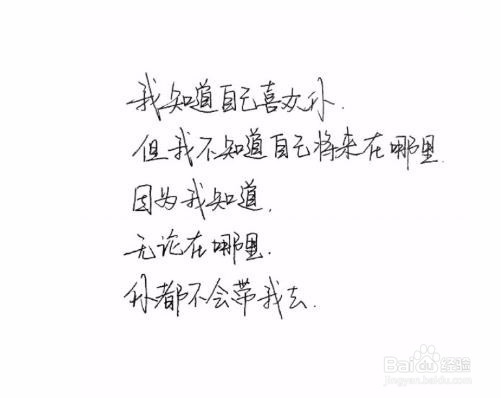 我知道自己喜欢你.
但我不知道自己将来在哪里.
因为我知道,
无论在哪里.
你都不会带我去.
Baidu 经验
jingyan.baidu.com